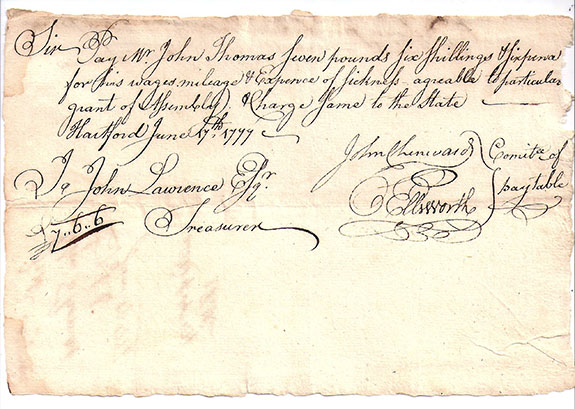 Sir Pay Mr. John Thomas Seven pounds Six Shillings & Sixpence
for his wages, mileage & Expence of Sickness agreable to particular
grant of Assembly & Charge Same to the State
Hartford June 17th 1777
John Chenward
Comitee of
To John Lawrence Esqr.
Ellsworth
pay table
£7..6..6
Treasurer